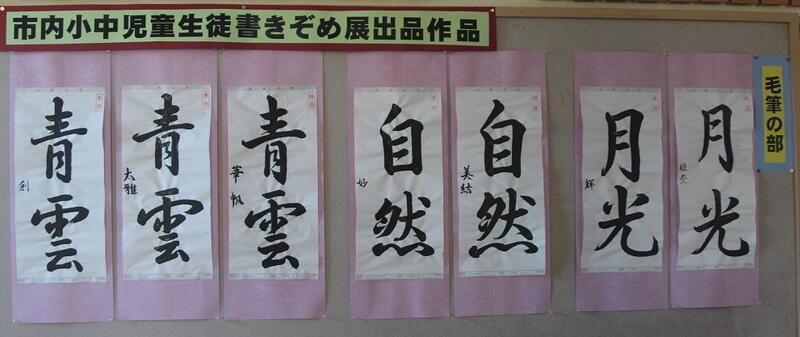 市内小中児童生徒書きぞめ展出品作品
毛筆の部
月光
姫奈
月光
輝
自然
美結
自然
好
青雲
華帆
青雲
太雅
青雲
創